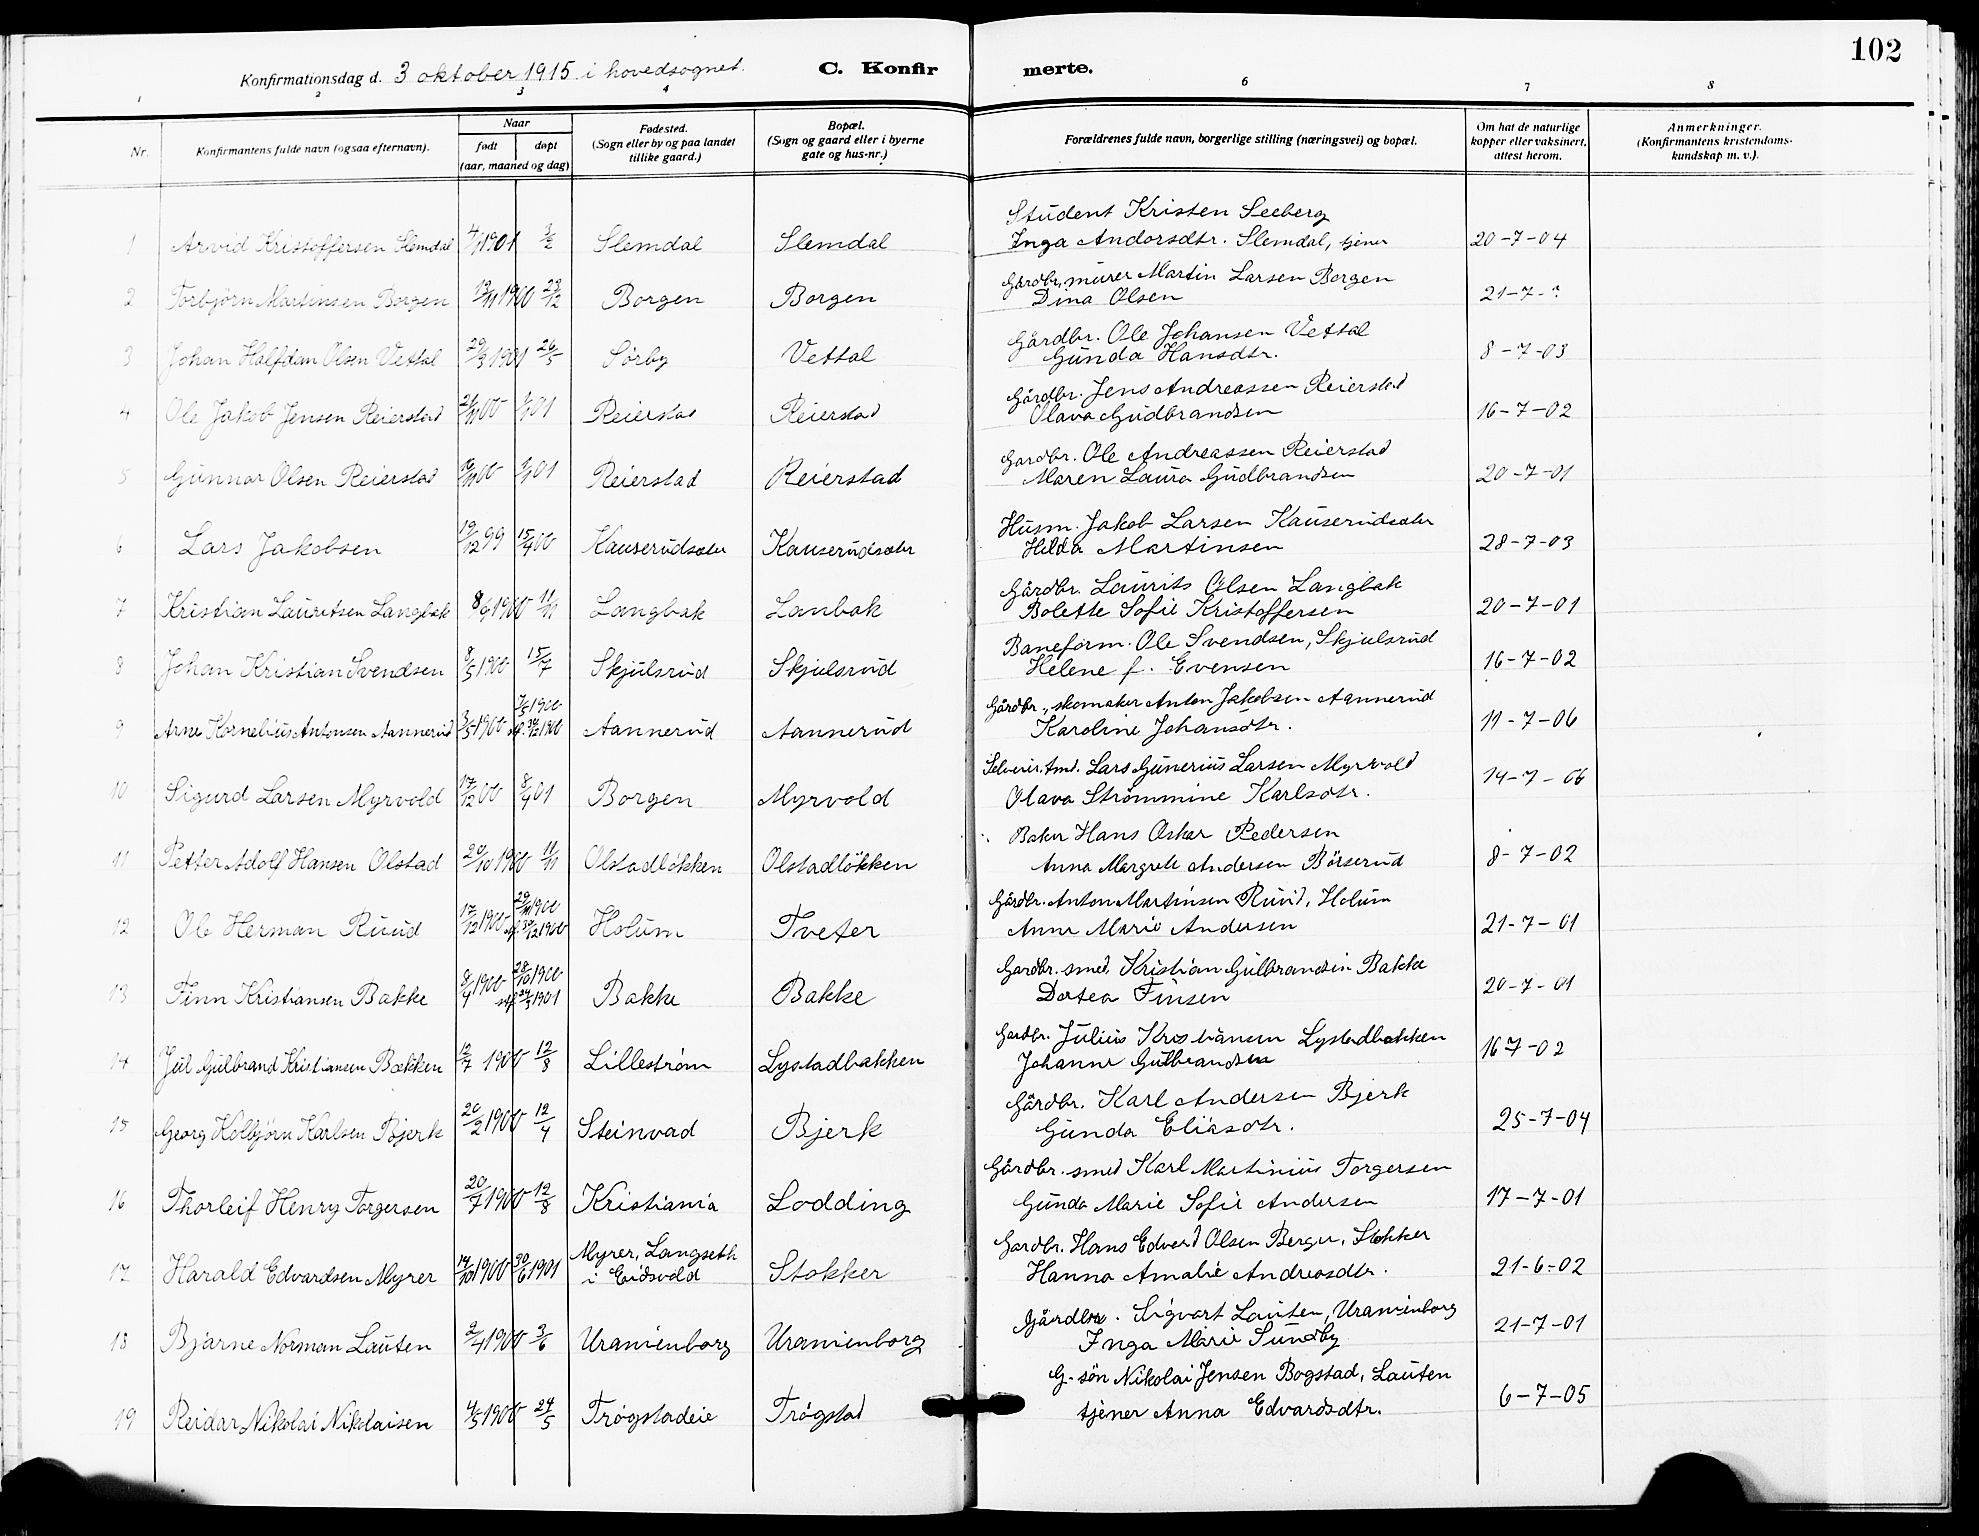 102
Konfirmationsdag d. 3 oktober 1915 i hovedsognet.
C. Konfirmerte.
1 2 3 4 6 7 8
Nr.
Konfirmantens fulde navn (ogsaa efternavn).
Naar
født døpt
(aar, maaned og dag)
Fødested.
(Sogn eller by og paa landet
tillike gaard.)
Bopæl.
(Sogn og gaard eller i byerne
gate og hus-nr.)
Forældrenes fulde navn, borgerlige stilling (næringsvei) og bopæl.
Om hat de naturlige
kopper eller vaksinert,
attest herom.
Anmerkninger.
(Konfirmantens kristendoms-
kundskap m. v.).
Student Kristen Seeberg
1 Arvid Kristoffersen Slemdal 4/1 1901 3/2 Slemdal Slemdal Inga Andorsdtr. Slemdal, tjener 20-7-04
Gårdbr., murer Martin Larsen Borgen
2 Torbjörn Martinsen Borgen 13/11 1900 23/12 Borgen Borgen Dina Olsen 21-7-?
Gårdbr. Ole Johansen Vettal
3 Johan Halfdan Olsen Vettal 29/3 1901 26/5 Sörby Vettal Gunda Hansdtr. 8-7-03
Gårdbr. Jens Andreassen Reierstad
4 Ole Jakob Jensen Reierstad 21/11 00 1/1 01 Reierstad Reierstad Olava Gudbrandsen 16-7-02
Gardbr. Ole Andreassen Reierstad
5 Gunnar Olsen Reierstad 00 01 Reierstad Reierstad Maren Laura Gudbrandsen 20-7-01
Husm. Jakob Larsen Kauserudsæter
6 Lars Jakobsen 19/12 99 15/4 00 Kauserudsæter Kauserudsæter Hilda Martinsen 28-7-03
Gårdbr. Laurits Olsen Langbak
7 Kristian Lauritsen Langbak 8/9 1900 11/11 Langbak Lanbak Bolette Sofie Kristoffersen 20-7-01
Baneform. Ole Svendsen, Skjulsrud
8 Johan Kristian Svendsen 8/5 1900 15/7 Skjulsrud Skjulsrud Helene f. Evensen 16-7-02
Gårdbr., skomaker Anton Jakobsen Aannerud
9 Arne Kornelius Antonsen Aannerud 3/5 1900 Aannerud Aannerud Karoline Johansdtr. 11-7-06
Lars Gunerius Larsen Myrvold
10 Sigurd Larsen Myrvold 17/12 00 8/4 01 Borgen Myrvold Olava Strømmine Karlsdtr. 14-7-06
Baker Hans Oskar Pedersen
11 Petter Adolf Hansen Olstad 20/10 1900 11/11 Olstadlökken Olstadlökken Anna Margrete Andersen Börserud 8-7-02
Gårdbr. Anton Martinsen Ruud, Holum
12 Ole Herman Ruud 17/12 1900 Holum Tveter Anne Marie Andersen 21-7-01
Gardbr. smed, Kristian Gulbrandsen Bakke
13 Finn Kristiansen Bakke 8/4 1900 28/10 1900 Bakke Bakke Dortea Finsen 20-7-01
Gardbr. Julius Kristiansen Lystadbakken
14 Jul Gulbrand Kristiansen Bakken 12/7 1900 12/8 Lillestrøm Lystadbakken Johanne Gulbrandsen 16 7-02
Gårdbr. Karl Andersen Bjerk
15 Georg Kolbjörn Karlsen Bjerk 20/2 1900 12/4 Steinvad Bjerk Gunda Eliasdtr. 25-7-04
Gårdbr. smed Karl Martinius Torgersen
16 Thorleif Henry Torgersen 20/7 1900 12/8 Kristiania Lodding Gunda Marie Sofie Andersen 17-7-01
Gardbr. Hans Edvard Olsen Berger, Stokker
17 Harald Edvardsen Myrer 14/10 1900 30/6 1901 Myrer, Langseth i Eidsvold Stokker Hanna Amalie Andreasdtr. 21-6-02
Gårdbr. Sigvart Lauten, Uranienborg
18 Bjarne Norman Lauten 2/4 1900 3/6 Uranienborg Uranienborg Inga Marie Sundby 21-7-01
G-sön Nikolai Jensen Bogstad, Lauten
19 Reidar Nikolai Nikolaisen 4/3 1900 24/5 Trögstadeie Trögstad tjener Anna Edvardsdtr. 6-7-05